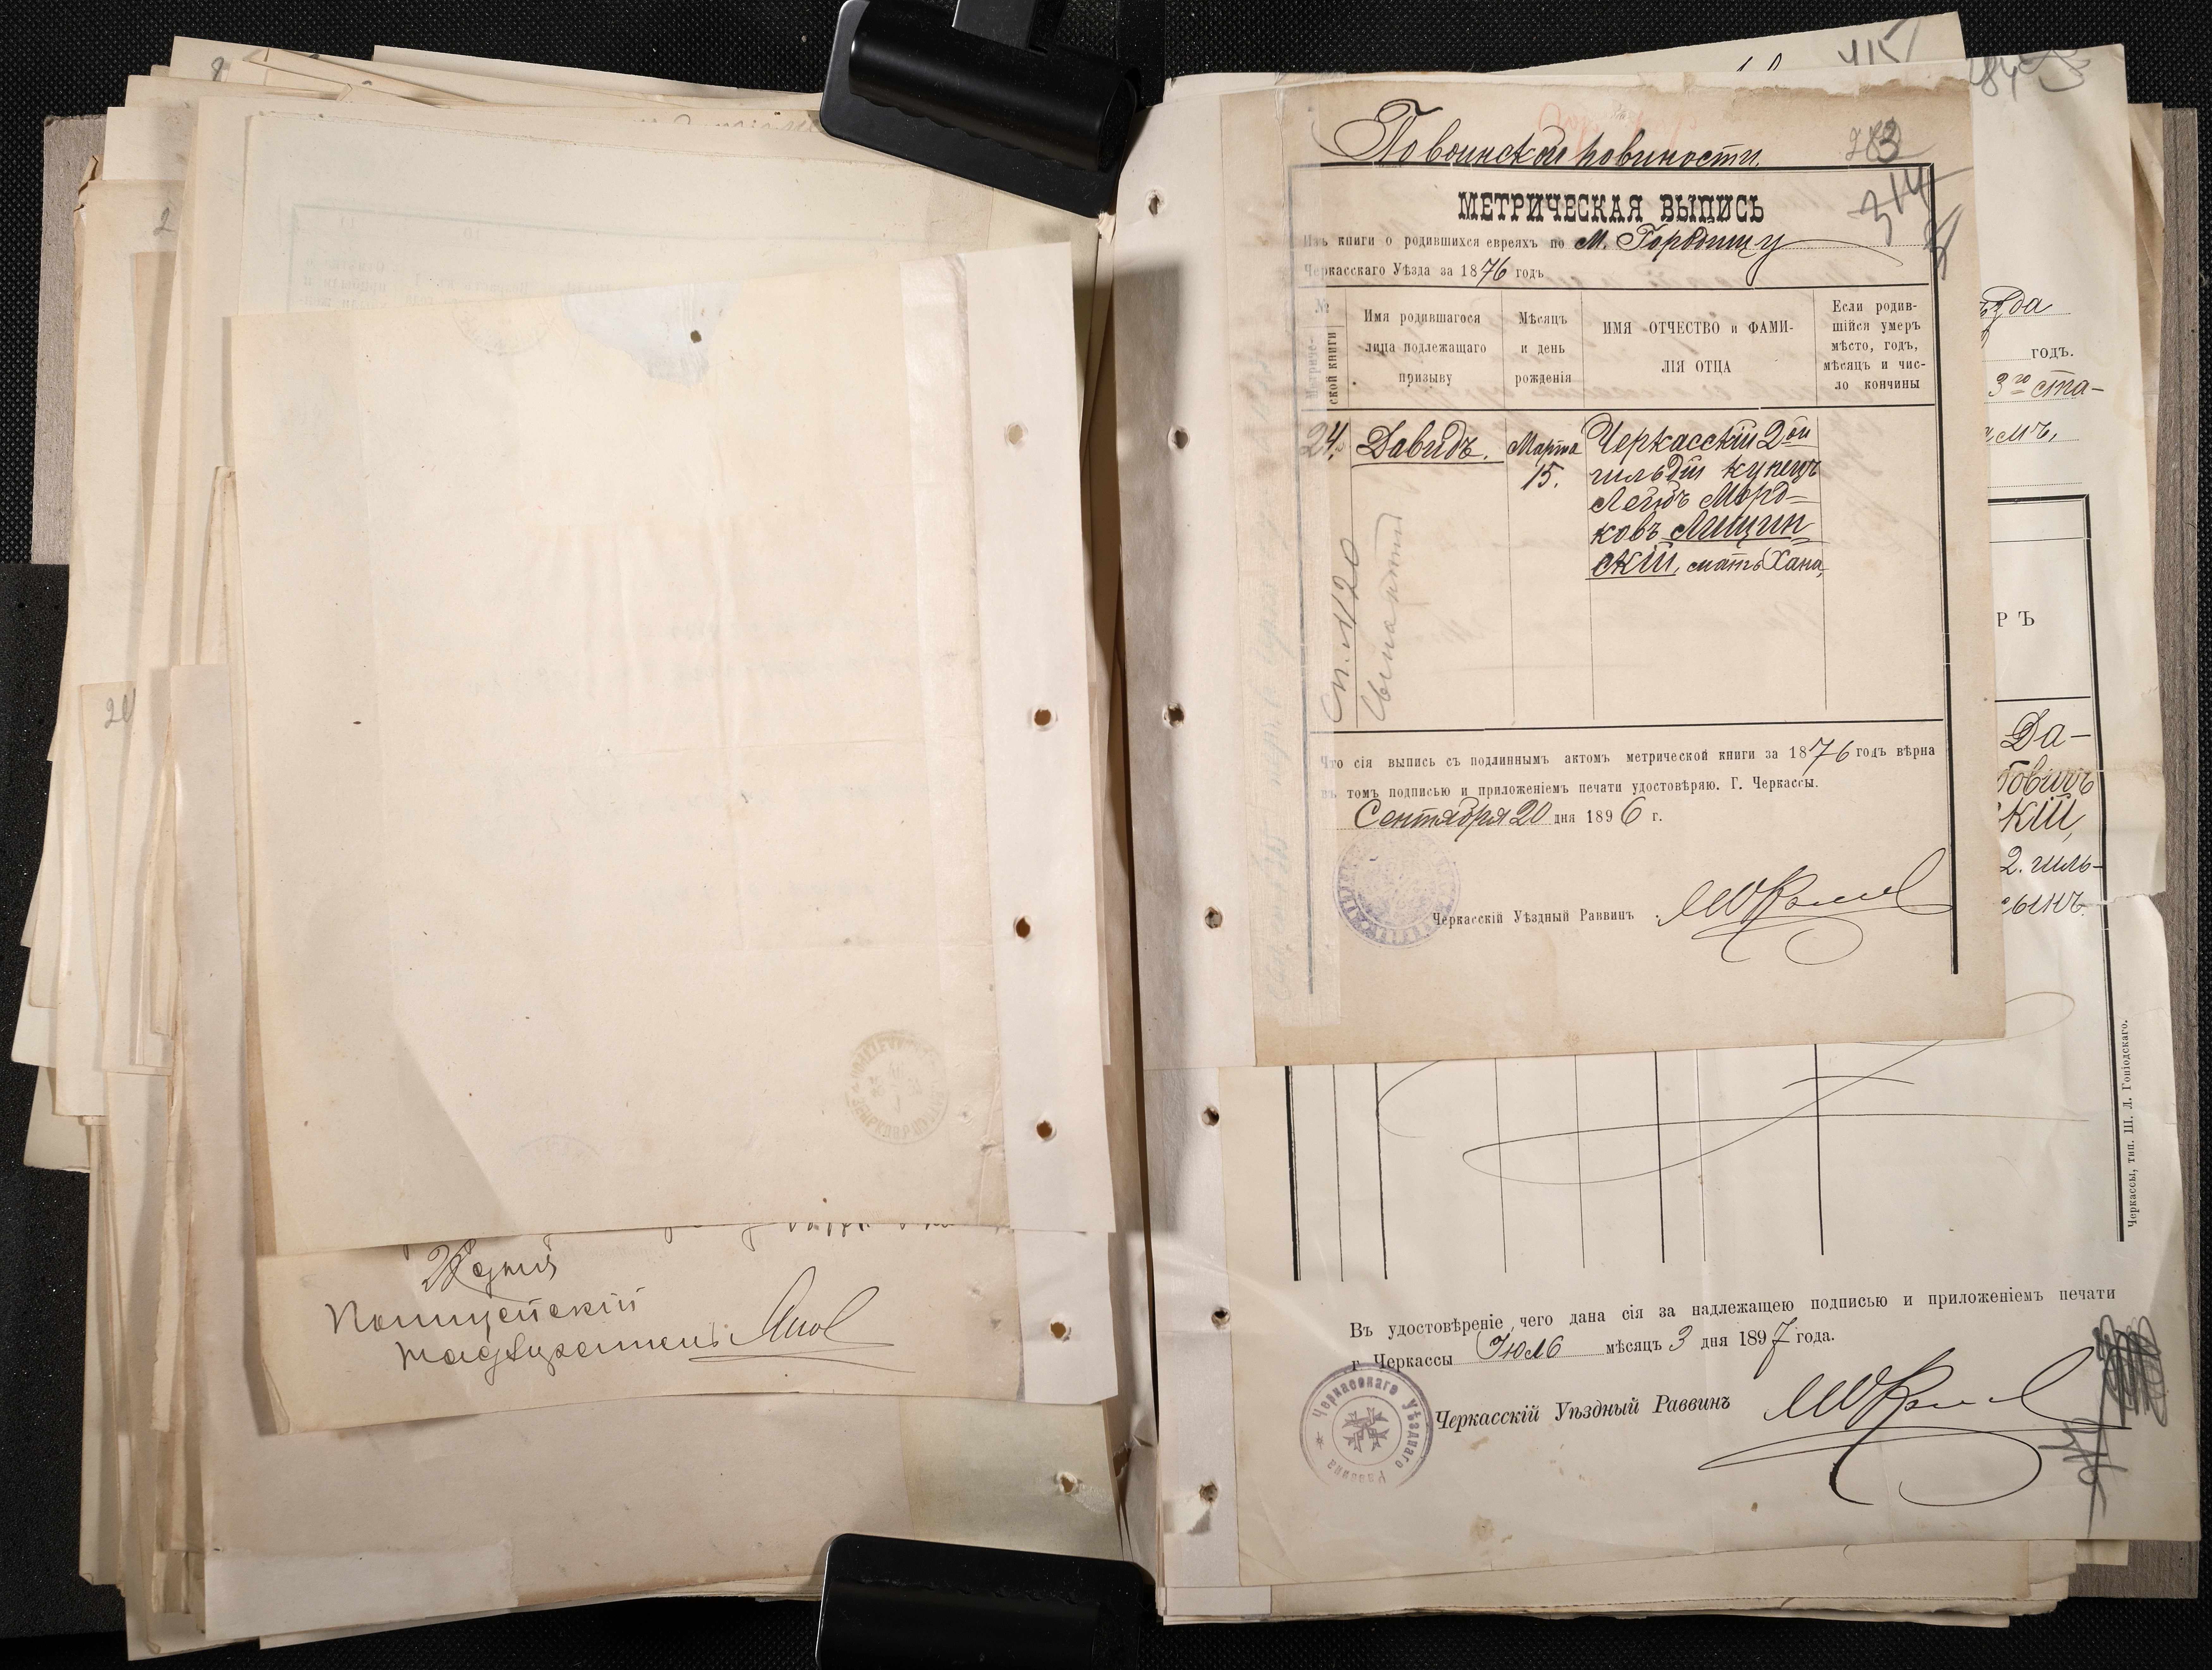 8
2
20
Полицейскій
Надзиратель
По воинской повиности
283
314
МЕТРИЧЕСКАЯ ВЫПИСЬ
Изъ книги о родившихся евреяхъ по м. Городищу
Черкасскаго Уѣзда за 1876 годъ
№ Метриче-
ской книги
Имя родившагося
лица подлежащаго
призыву
Мѣсяцъ
и день
рожденія
ИМЯ ОТЧЕСТВО и ФАМИ-
ЛІЯ ОТЦА
Если родив-
шійся умеръ
мѣсто, годъ,
мѣсяцъ и чис-
ло кончины
24.
Давидъ.
Марта
15.
Черкасскій 2ой
гильдіи купецъ
Лейбъ Морд-
ковъ Лищин-
скій, мать Хана,
Сп. №120
Что сія выпись съ подлиннымъ актомъ метрической книги за 1876 годъ вѣрна
въ томъ подписью и приложеніемъ печати удостовѣряю. Г. Черкассы.
Сентября 20 дня 1896 г.
Черкасскій Уѣздный Раввинъ
415
284
уѣзда
годъ.
3го ста-
РЪ
Да-
бовичъ
скій,
2. гиль-
сынъ.
Черкассы, тип. Ш. Л. Гоніодскаго.
Въ удостовѣреніе чего дана сія за надлежащею подписью и приложеніемъ печати
г. Черкассы Іюль мѣсяцъ 3 дня 1897 года.
Черкасскаго Уѣзднаго Раввина
Черкасскій Уѣздный Раввинъ